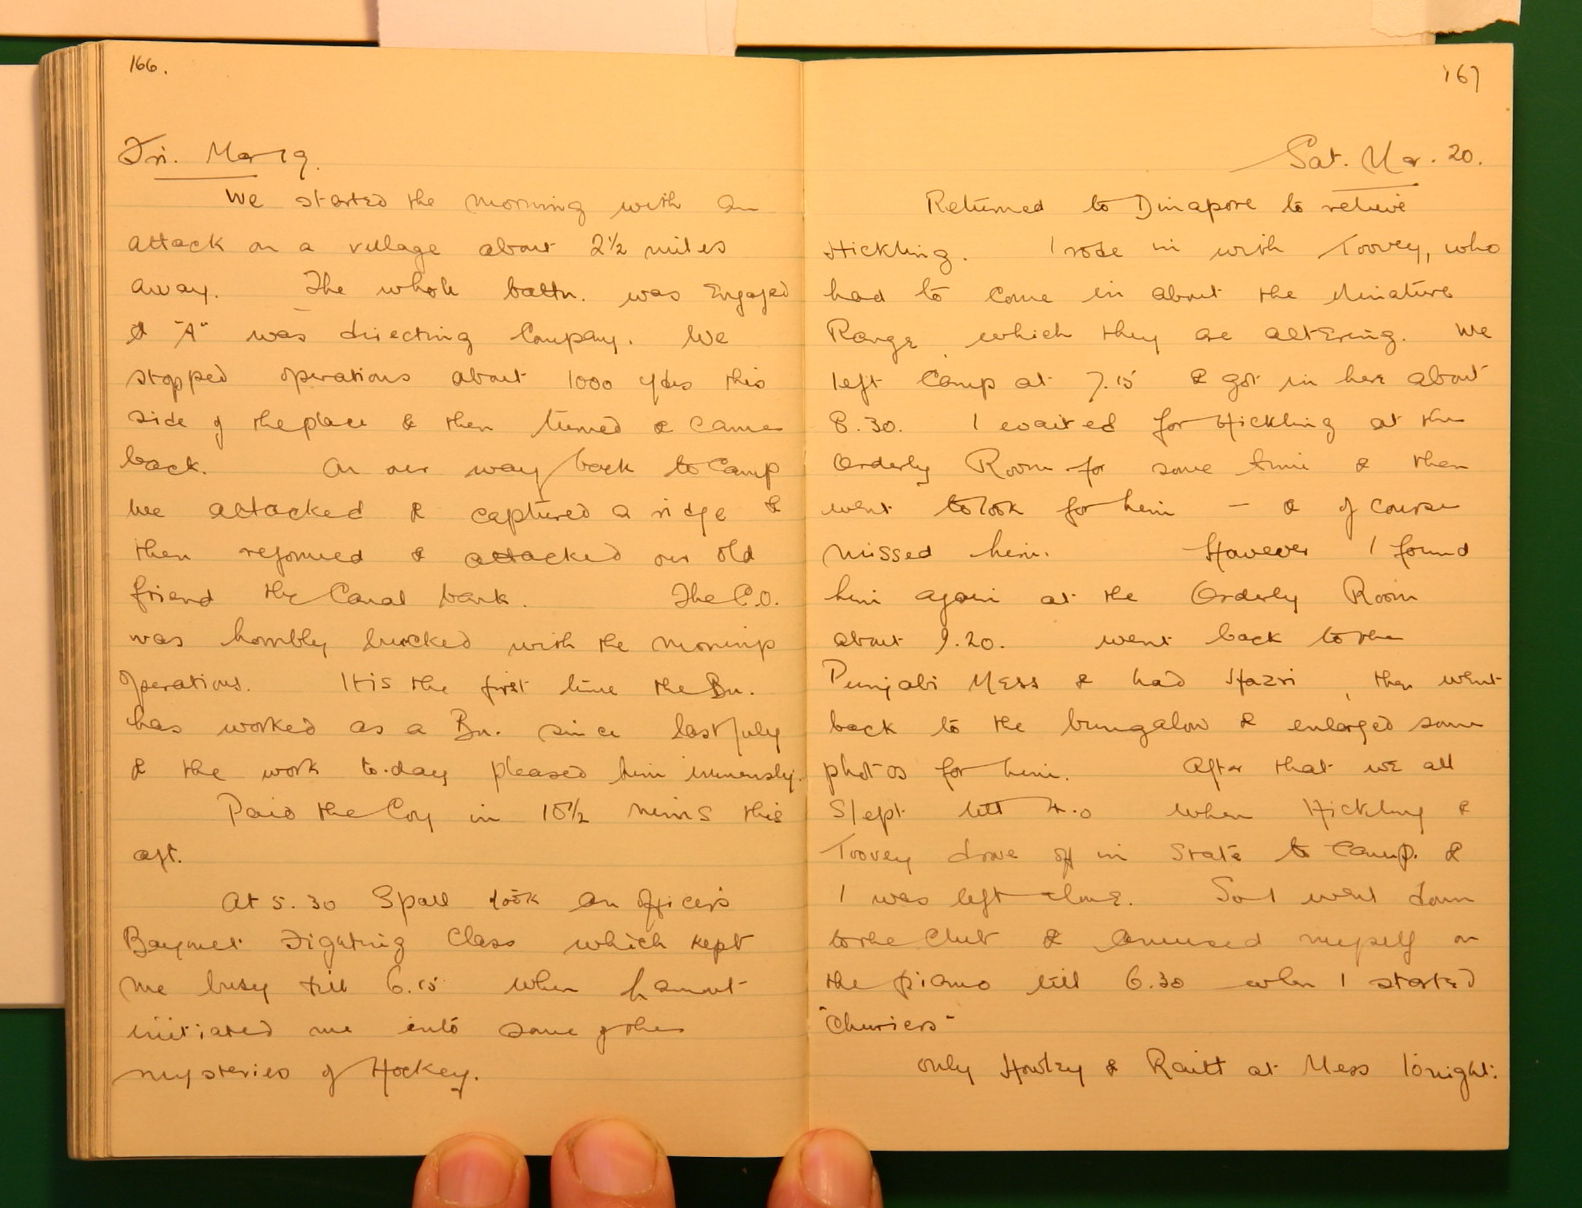 166.
Fri. Mar 19.
We started the morning with an
attack on a village about 2½ miles
away. The whole battn. was engaged
& "A" was directing Company. We
stopped operations about 1000 yds this
side of the place & then turned & came
back. On our way back to Camp
we attacked & captured a ridge &
then reformed & attacked our old
friend the Canal bank. The C.O.
was horribly bucked with the morning
operations. It is the first time the Bn.
has worked as a Bn. since last July
& the work to-day pleased him immensely.
Paid the Coy in 10½ mins this
aft.
At 5.30 Spall took an officers
Bayonet Fighting Class which kept
me busy till 6.15 when
initiated me into some of the
mysteries of Hockey.
167
Sat. Mar. 20.
Returned to Dinapore to relieve
Hickling. I rode in with Toovey, who
had to come in about the Miniature
Range which they are altering. We
left Camp at 7.15 & got in here about
8.30. I waited for Hickling at the
Orderly Room for some time & then
went to look for him - & of course
missed him. However I found
him again at the Orderly Room
about 9.20. went back to the
Punjabi Mess & had Hazri, then went
back to the bungalow & enlarged some
photos for him. After that we all
slept till 4.0 when Hickling &
Toovey drove off in State to Camp. &
I was left alone. So I went down
to the Club & amused myself on
the piano till 6.30 when I started
only & Raitt at Mess tonight.